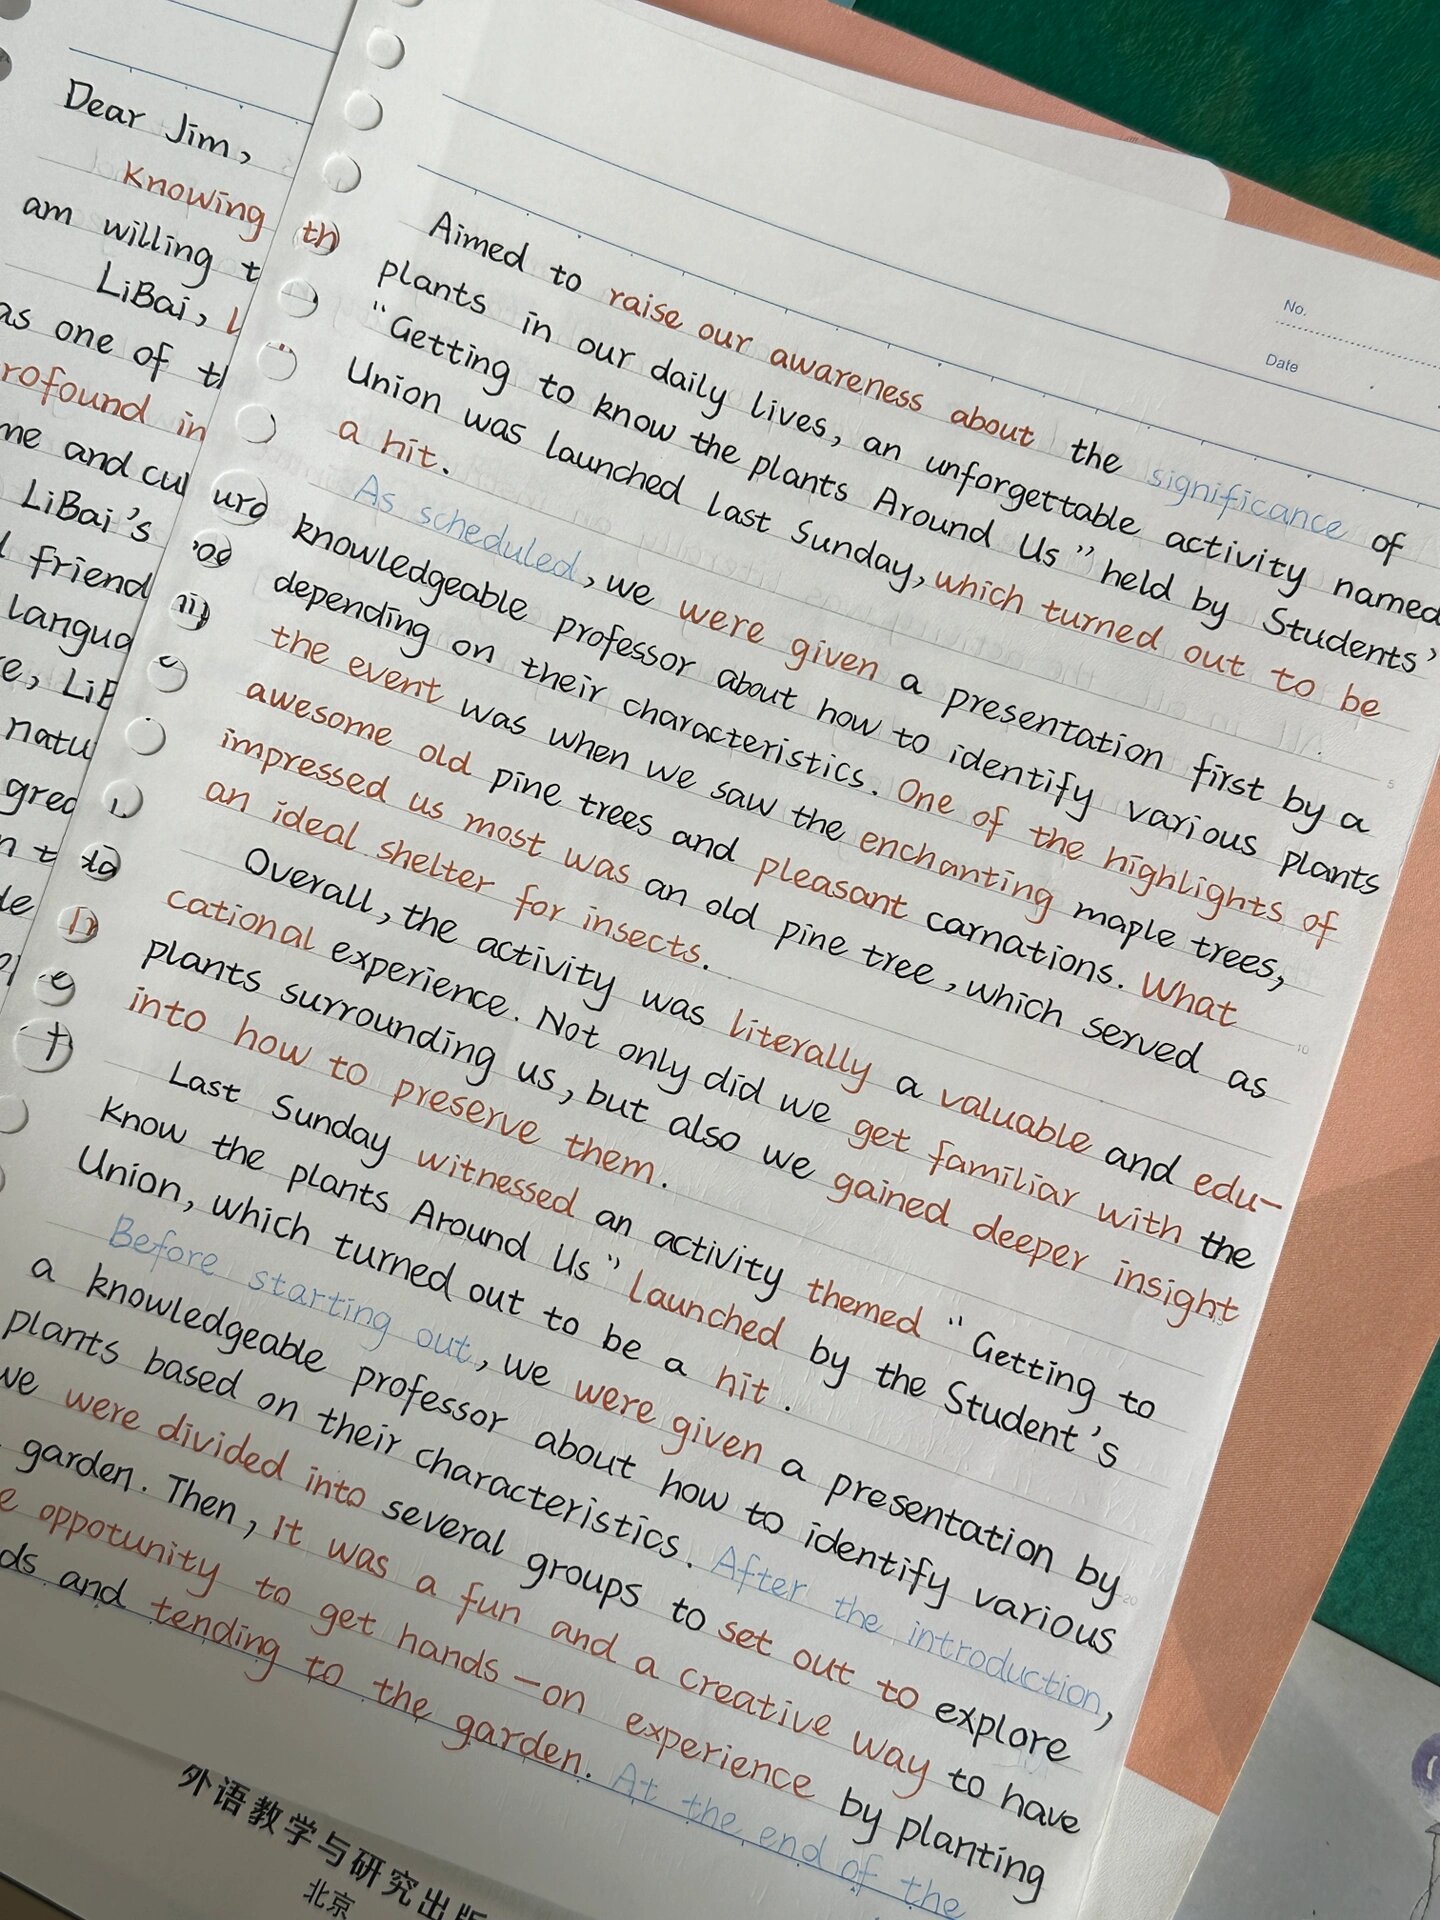 Dear Jim,
Knowing
am willing t
LiBai, L
as one of th
rofound in
me and cul
LiBai's
friend
Langua
e, LiB
natu
grea
No.
Date
Aimed to raise our awareness about the significance of
plants in our daily lives, an unforgettable activity named
"Getting to know the plants Around Us" held by Students'
Union was launched last Sunday, which turned out to be
a hit.
As scheduled, we were given a presentation first by a
knowledgeable professor about how to identify various plants
depending on their characteristics. One of the highlights of
the event was when we saw the enchanting maple trees,
awesome old pine trees and pleasant carnations. What
impressed us most was an old pine tree, which served as
an ideal shelter for insects.
Overall, the activity was literally a valuable and edu-
cational experience. Not only did we get familiar with the
plants surrounding us, but also we gained deeper insight
into how to preserve them.
Last Sunday witnessed an activity themed "Getting to
Know the plants Around Us" Launched by the Student's
Union, which turned out to be a hit.
Before starting out, we were given a presentation by
a knowledgeable professor about how to identify various
plants based on their characteristics. After the introduction,
we were divided into several groups to set out to explore
garden. Then, It was a fun and a creative way to have
e oppotunity to get hands-on experience by planting
ds and tending to the garden. At the end of the
外语教学与研究出版
北京